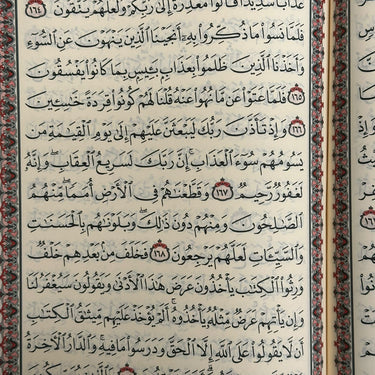 عَذَابًا شَدِيدًا قَالُوا۟ مَعْذِرَةً إِلَىٰ رَبِّكُمْ وَلَعَلَّهُمْ يَتَّقُونَ ١٦٤
فَلَمَّا نَسُوا۟ مَا ذُكِّرُوا۟ بِهِۦٓ أَنجَيْنَا ٱلَّذِينَ يَنْهَوْنَ عَنِ ٱلسُّوٓءِ
وَأَخَذْنَا ٱلَّذِينَ ظَلَمُوا۟ بِعَذَابٍۭ بَـِٔيسٍۭ بِمَا كَانُوا۟ يَفْسُقُونَ
١٦٥ فَلَمَّا عَتَوْا۟ عَن مَّا نُهُوا۟ عَنْهُ قُلْنَا لَهُمْ كُونُوا۟ قِرَدَةً خَـٰسِـِٔينَ
١٦٦ وَإِذْ تَأَذَّنَ رَبُّكَ لَيَبْعَثَنَّ عَلَيْهِمْ إِلَىٰ يَوْمِ ٱلْقِيَـٰمَةِ مَن
يَسُومُهُمْ سُوٓءَ ٱلْعَذَابِ ۗ إِنَّ رَبَّكَ لَسَرِيعُ ٱلْعِقَابِ ۖ وَإِنَّهُۥ
لَغَفُورٌ رَّحِيمٌ ١٦٧ وَقَطَّعْنَـٰهُمْ فِى ٱلْأَرْضِ أُمَمًا ۖ مِّنْهُمُ
ٱلصَّـٰلِحُونَ وَمِنْهُمْ دُونَ ذَٰلِكَ ۖ وَبَلَوْنَـٰهُم بِٱلْحَسَنَـٰتِ
وَٱلسَّيِّـَٔاتِ لَعَلَّهُمْ يَرْجِعُونَ ١٦٨ فَخَلَفَ مِنۢ بَعْدِهِمْ خَلْفٌ
وَرِثُوا۟ ٱلْكِتَـٰبَ يَأْخُذُونَ عَرَضَ هَـٰذَا ٱلْأَدْنَىٰ وَيَقُولُونَ سَيُغْفَرُ لَنَا
وَإِن يَأْتِهِمْ عَرَضٌ مِّثْلُهُۥ يَأْخُذُوهُ ۚ أَلَمْ يُؤْخَذْ عَلَيْهِم مِّيثَـٰقُ ٱلْكِتَـٰبِ
أَن لَّا يَقُولُوا۟ عَلَى ٱللَّهِ إِلَّا ٱلْحَقَّ وَدَرَسُوا۟ مَا فِيهِ ۗ وَٱلدَّارُ ٱلْـَٔاخِرَةُ